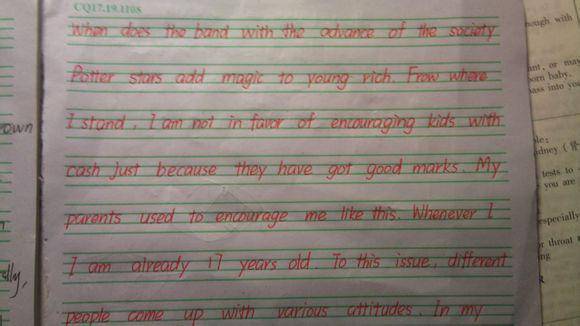 CQ17.19.1108
When does the band with the advance of the society
Potter stars add magic to young rich. Frow where
I stand, I am not in favor of encouraging kids with
cash just because they have got good marks. My
parents used to encourage me like this. Whenever I
I am already 17 years old. To this issue, different
people come up with various attitudes. In my
own
elly,
nough with
ant, or may
orn baby.
ass into you
ple:
dney (
tests to
you are
especially
or throat
ng